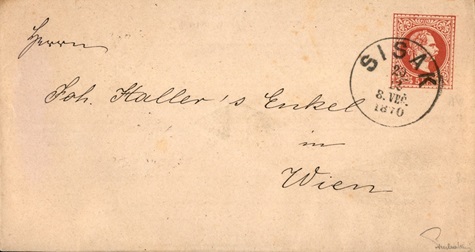 Herrn
SISAK
8. VEČ.
1870
Joh. Haller's Enkel
in
Wien